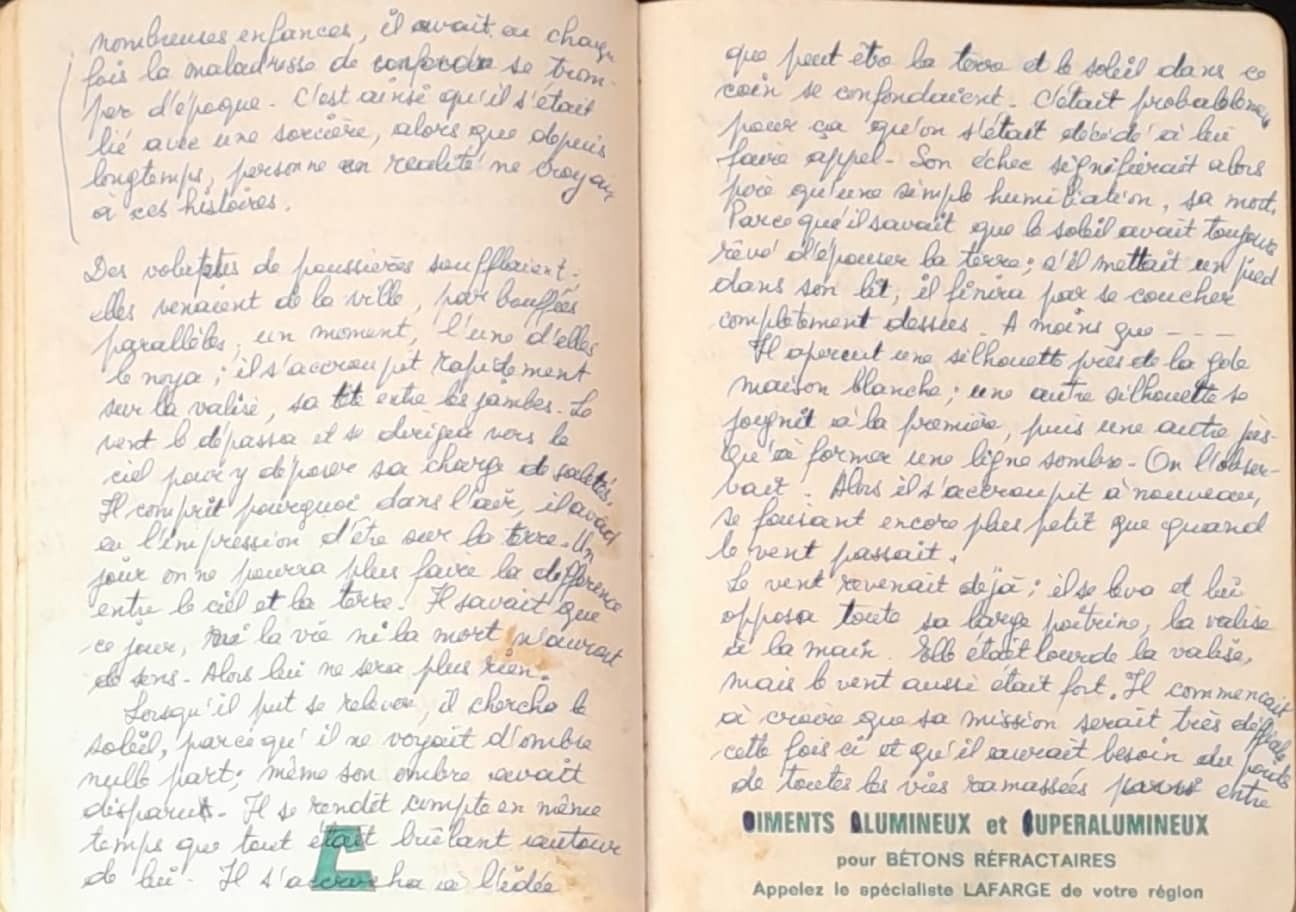 nombreuses enfances, il avait eu chaque
fois la maladresse de confondre se trom-
per d'époque. C'est ainsi qu'il s'était
lié avec une sorcière, alors que depuis
longtemps, personne en réalité ne croyait
a ces histoires.
Des volutes de poussières soufflaient;
elles venaient de la ville, par bouffées
parallèles; un moment, l'une d'elles
le noya; il s'accroupit rapidement
sur la valise, sa tête entre les jambes. Le
vent le dépassa et se dirigea vers le
ciel pour y déposer sa charge de saletés.
Il comprit pourquoi dans l'air, il avait
eu l'impression d'être sur la terre. Un
jour on ne pourra plus faire la différence
entre le ciel et la terre. Il savait que
ce jour, ni la vie ni la mort n'aurait
de sens. Alors lui ne sera plus rien.
Lorsqu'il put se relever, il chercha le
soleil, parce qu'il ne voyait d'ombre
nulle part; même son ombre avait
disparu. Il se rendit compte en même
temps que tout était brûlant autour
de lui. Il s'accrocha à l'idée
que peut être la terre et le soleil dans ce
coin se confondaient. C'était probablement
pour ça qu'on s'était décidé à lui
faire appel. Son échec signifierait alors
pire qu'une simple humiliation, sa mort.
Parce qu'il savait que le soleil avait toujours
rêvé d'épouser la terre; s'il mettait un pied
dans son lit, il finira par se coucher
complètement dessus. A moins que ----
Il aperçut une silhouette près de la
maison blanche; une autre silhouette se
joignit à la première, puis une autre jus-
qu'à former une ligne sombre. On l'obser-
vait. Alors il s'accroupit à nouveau,
se faisant encore plus petit que quand
le vent passait.
Le vent revenait déjà; il se leva et lui
opposa toute sa large poitrine, la valise
à la main. Elle était lourde la valise,
mais le vent aussi était fort. Il commençait
à croire que sa mission serait très
cette fois ci et qu'il aurait besoin du
de toutes les vies ramassées parmi entre
CIMENTS ALUMINEUX et SUPERALUMINEUX
pour BÉTONS RÉFRACTAIRES
Appelez le spécialiste LAFARGE de votre région